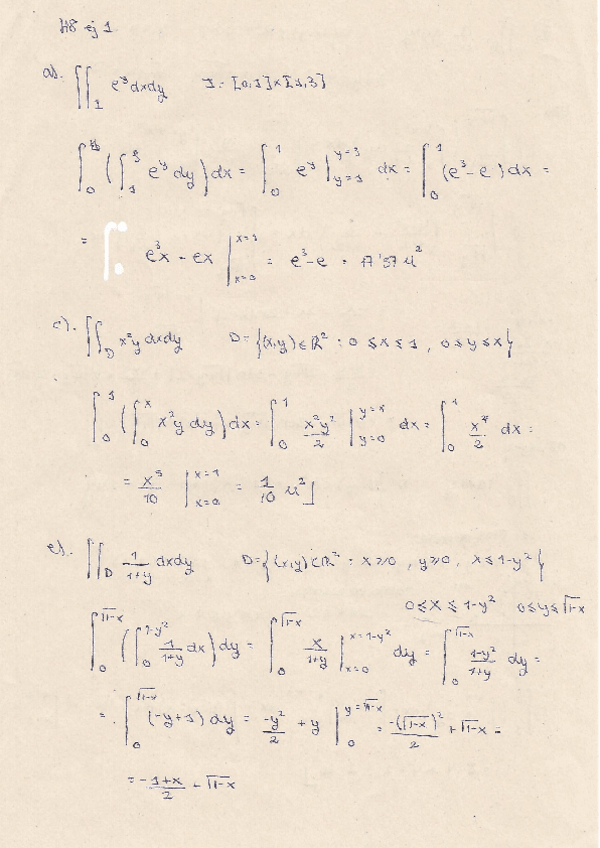 48 ej 1
a). ∬_I e^y dxdy I = [0,1]×[1,3]
∫_0^1 (∫_1^3 e^y dy) dx = ∫_0^1 e^y |_{y=1}^{y=3} dx = ∫_0^1 (e^3 - e) dx =
= e^3x - ex |_{x=0}^{x=1} = e^3 - e = 17'37 u^2
c). ∬_D x^2y dxdy D = {(x,y) ∈ ℝ^2 : 0 ≤ x ≤ 1, 0 ≤ y ≤ x}
∫_0^1 (∫_0^x x^2y dy) dx = ∫_0^1 x^2y^2/2 |_{y=0}^{y=x} dx = ∫_0^1 x^4/2 dx =
= x^5/10 |_{x=0}^{x=1} = 1/10 u^2⌋
e). ∬_D 1/(1+y) dxdy D = {(x,y) ∈ ℝ^2 : x ≥ 0, y ≥ 0, x ≤ 1-y^2}
0 ≤ x ≤ 1-y^2 0 ≤ y ≤ √(1-x)
∫_0^{√(1-x)} (∫_0^{1-y^2} 1/(1+y) dx) dy = ∫_0^{√(1-x)} x/(1+y) |_{x=0}^{x=1-y^2} dy = ∫_0^{√(1-x)} (1-y^2)/(1+y) dy =
= ∫_0^{√(1-x)} (-y+1) dy = -y^2/2 + y |_0^{y=√(1-x)} = -(√(1-x))^2/2 + √(1-x) =
= -1+x/2 - √(1-x)